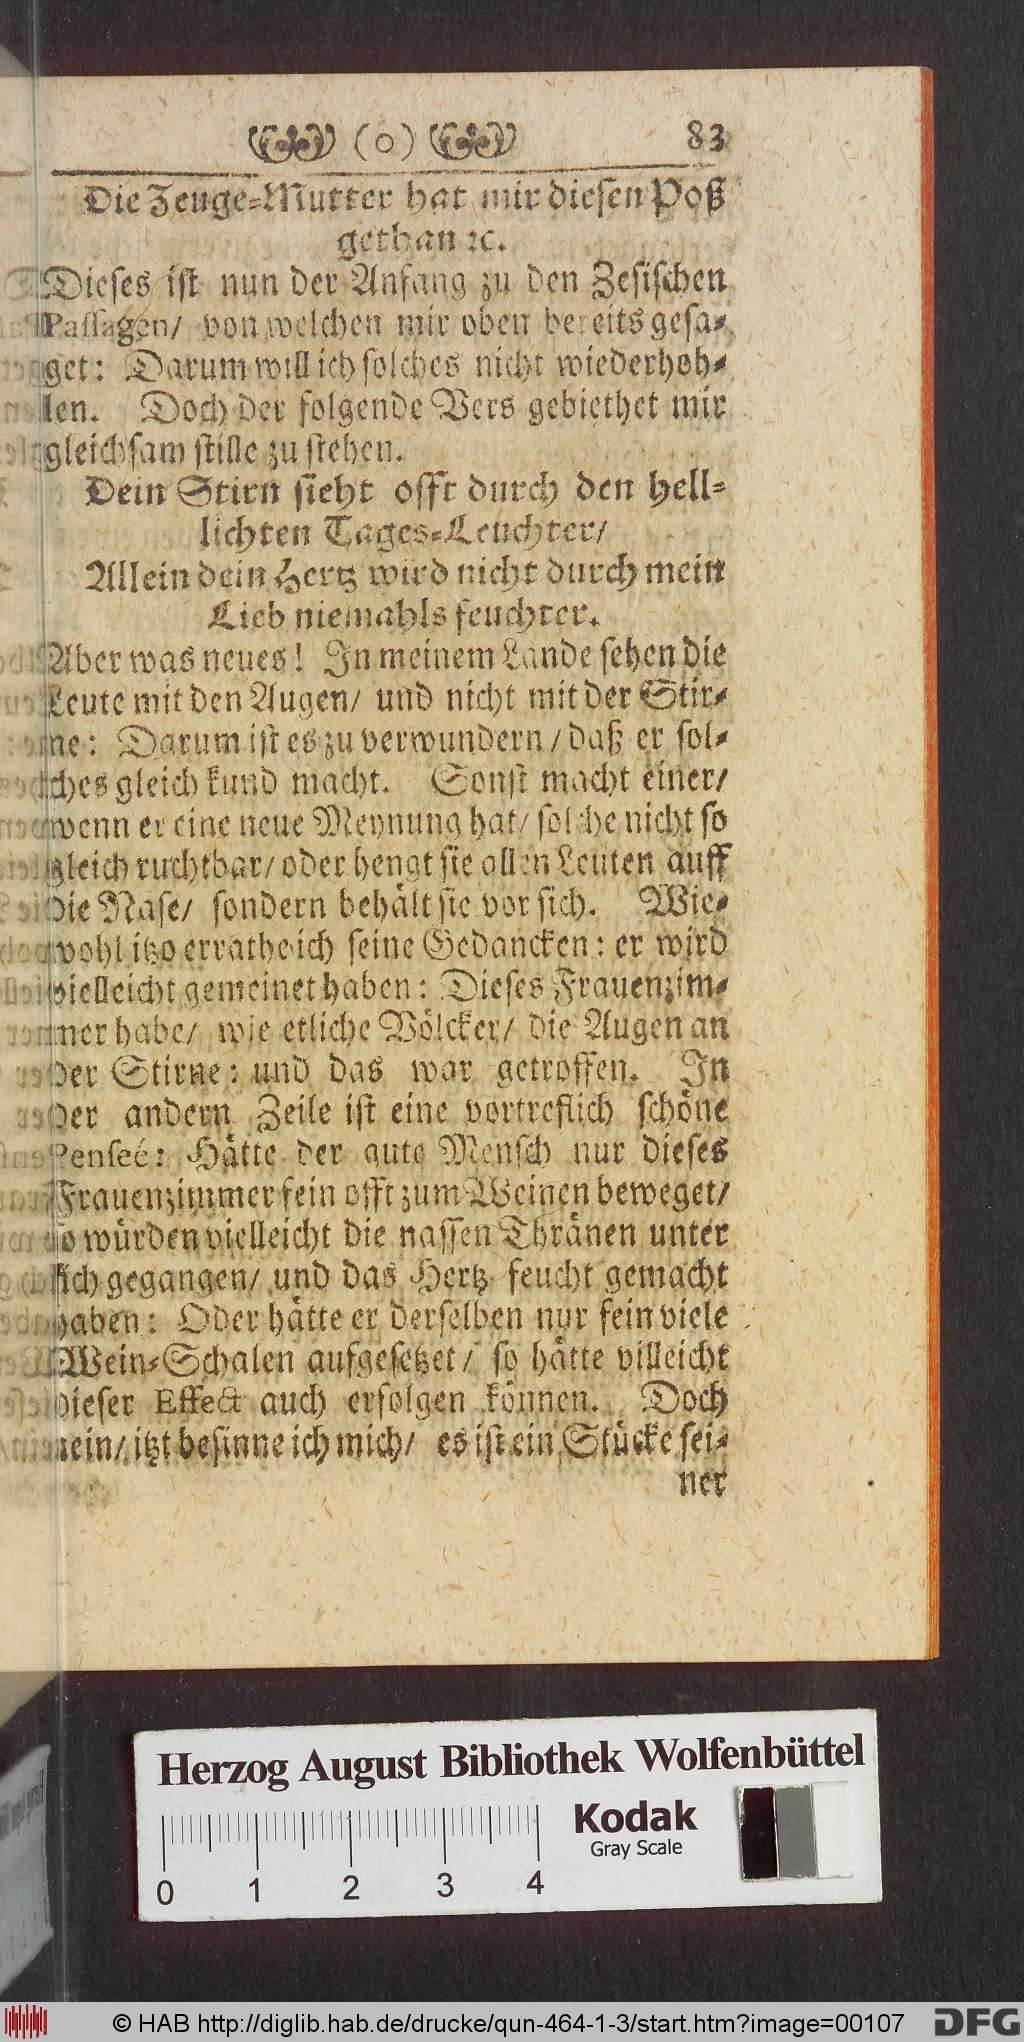 (o) 83
Die Zeuge-Mutter hat mir diesen Poß
gethan ꝛc.
Dieses ist nun der Anfang zu den Zesischen
Passagen/ von welchen mir oben bereits gesa-
get: Darum will ich solches nicht wiederhoh-
len. Doch der folgende Vers gebiethet mir
gleichsam stille zu stehen.
Dein Stirn sieht offt durch den hell-
lichten Tages-Leuchter/
Allein dein Hertz wird nicht durch mein
Lieb niemahls feuchter.
Aber was neues! In meinem Lande sehen die
Leute mit den Augen/ und nicht mit der Stir-
ne: Darum ist es zu verwundern/ daß er sol-
ches gleich kund macht. Sonst macht einer/
wenn er eine neue Meynung hat/ solche nicht so
gleich ruchtbar/ oder hengt sie allen Leuten auff
die Nase/ sondern behält sie vor sich. Wie-
wohl itzo errathe ich seine Gedancken: er wird
vielleicht gemeinet haben: Dieses Frauenzim-
mer habe/ wie etliche Völcker/ die Augen an
der Stirne: und das war getroffen. In
der andern Zeile ist eine vortreflich schöne
Penseé: Hätte der gute Mensch nur dieses
Frauenzimmer fein offt zum Weinen beweget/
so würden vielleicht die nassen Thränen unter
sich gegangen/ und das Hertz feucht gemacht
haben: Oder hätte er derselben nur fein viele
Wein-Schalen aufgesetzet/ so hätte villeicht
dieser Effect auch erfolgen können. Doch
nein/ itzt besinne ich mich/ es ist ein Stücke sei-
ner
Herzog August Bibliothek Wolfenbüttel
Kodak
Gray Scale
0 1 2 3 4
© HAB http://diglib.hab.de/drucke/qun-464-1-3/start.htm?image=00107 DFG